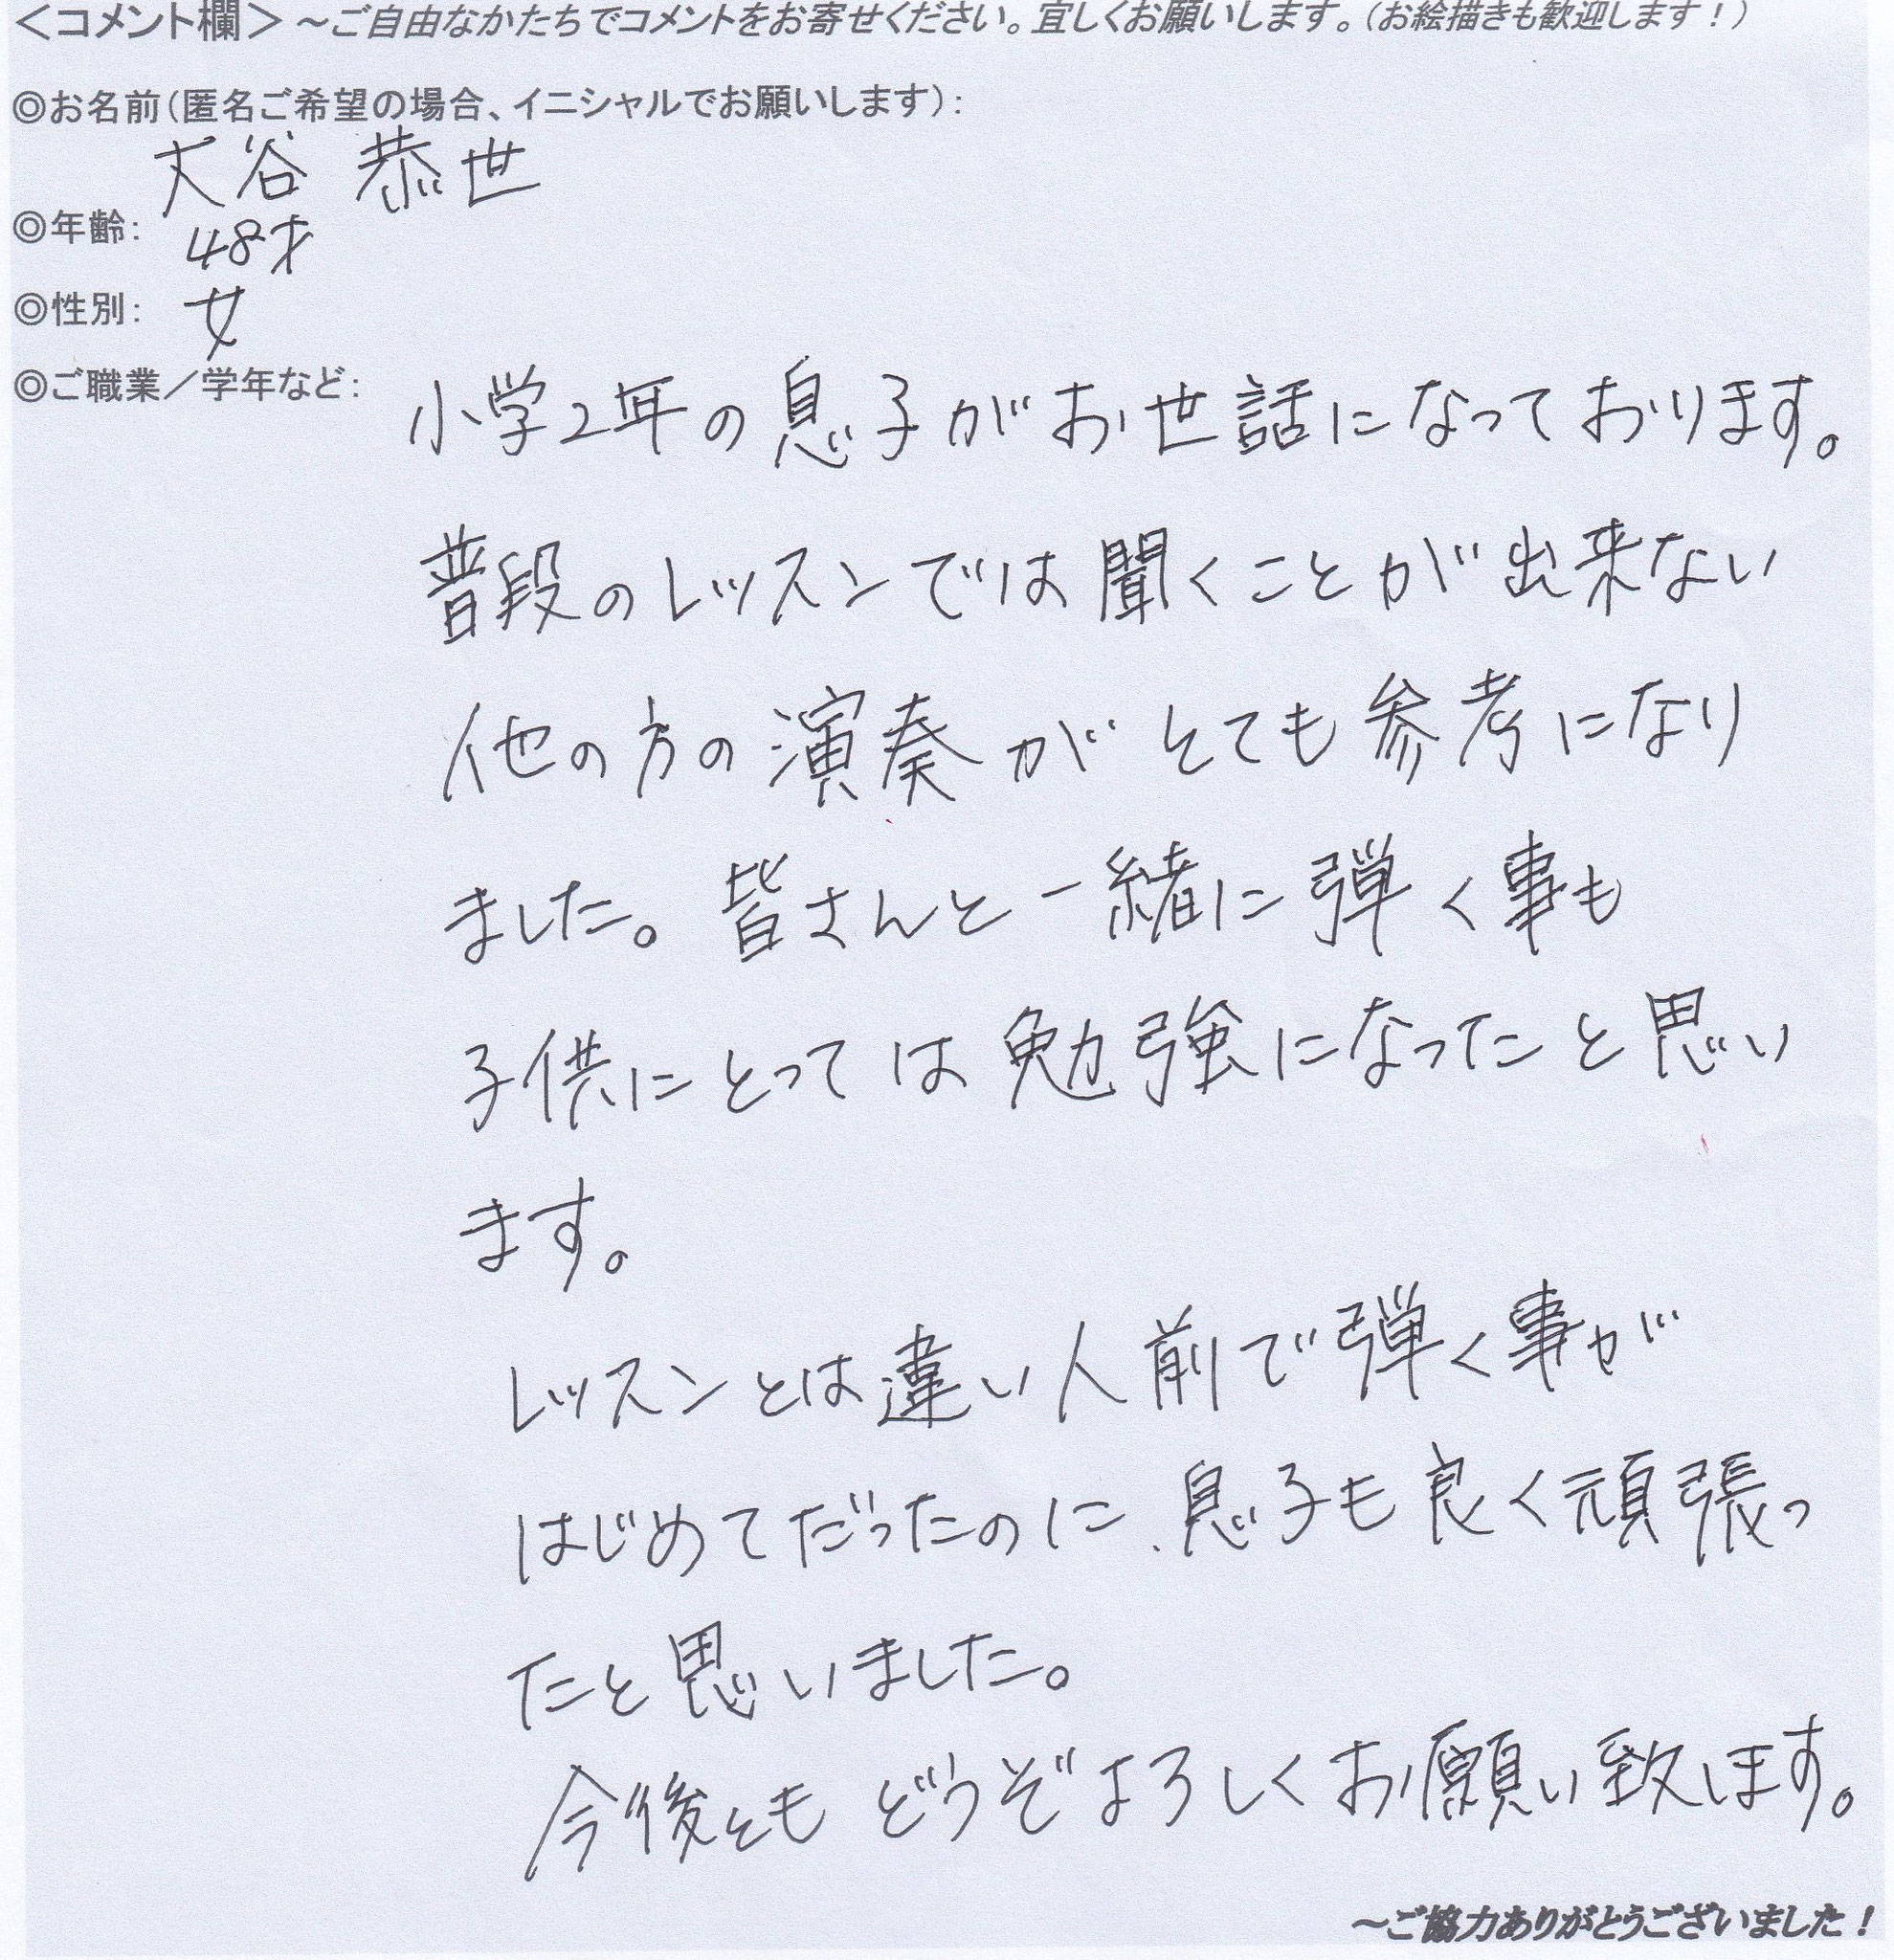 ＜コメント欄＞～ご自由なかたちでコメントをお寄せください。宜しくお願いします。（お絵描きも歓迎します！）
◎お名前（匿名ご希望の場合、イニシャルでお願いします）：
大谷 恭世
◎年齢： 48才
◎性別： 女
◎ご職業／学年など： 小学2年の息子がお世話になっております。
普段のレッスンでは聞くことが出来ない
他の方の演奏がとても参考になり
ました。皆さんと一緒に弾く事も
子供にとっては勉強になったと思い
ます。
レッスンとは違い人前で弾く事が
はじめてだったのに、息子も良く頑張っ
たと思いました。
今後ともどうぞよろしくお願い致します。
～ご協力ありがとうございました！